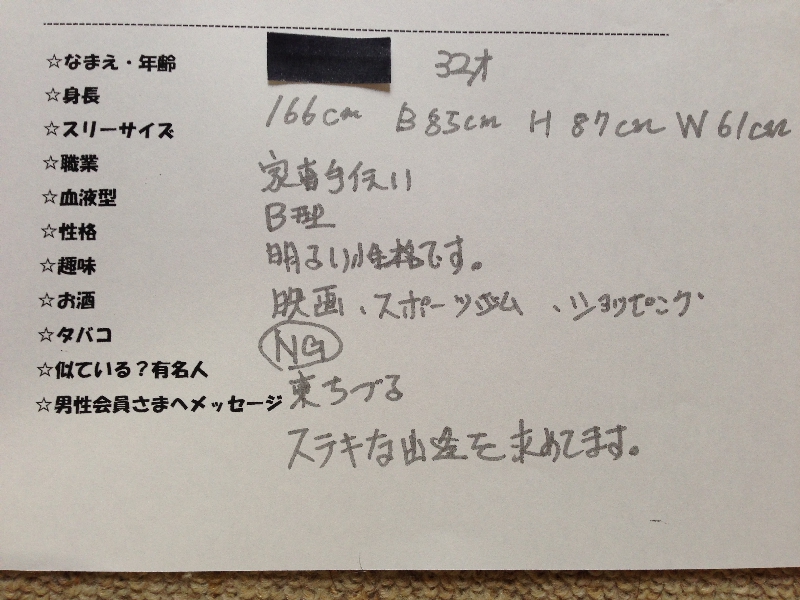 ☆なまえ・年齢 32才
☆身長
166cm B 85cm H 87cm W 61cm
☆スリーサイズ
☆職業
家事手伝い
☆血液型
B型
☆性格
明るい性格です。
☆趣味
映画、スポーツジム、ショッピング
☆お酒
☆タバコ
NG
☆似ている?有名人
東ちづる
☆男性会員さまへメッセージ
ステキな出逢を求めてます。